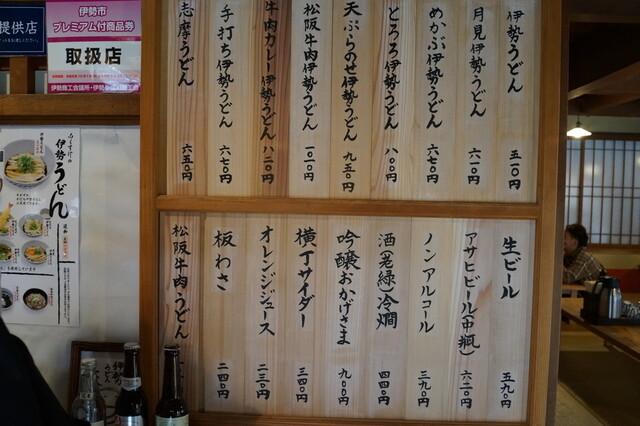 伊勢うどん 五一〇円
月見伊勢うどん 六一〇円
めかぶ伊勢うどん 六七〇円
とろろ伊勢うどん 八〇〇円
天ぷらのせ伊勢うどん 九五〇円
松阪牛肉伊勢うどん 一〇一〇円
牛肉カレー伊勢うどん 八二〇円
手打ち伊勢うどん 六七〇円
志摩うどん 六五〇円
生ビール 五九〇円
アサヒビール(中瓶) 六二〇円
ノンアルコール 三九〇円
酒(老緑)冷燗 四四〇円
吟醸おかげさま 九〇〇円
横丁サイダー 三四〇円
オレンジジュース 二三〇円
板わさ 二四〇円
松阪牛肉うどん
提供店
伊勢市
プレミアム付商品券
取扱店
伊勢商工会議所・伊勢
伊勢うどん
伊勢